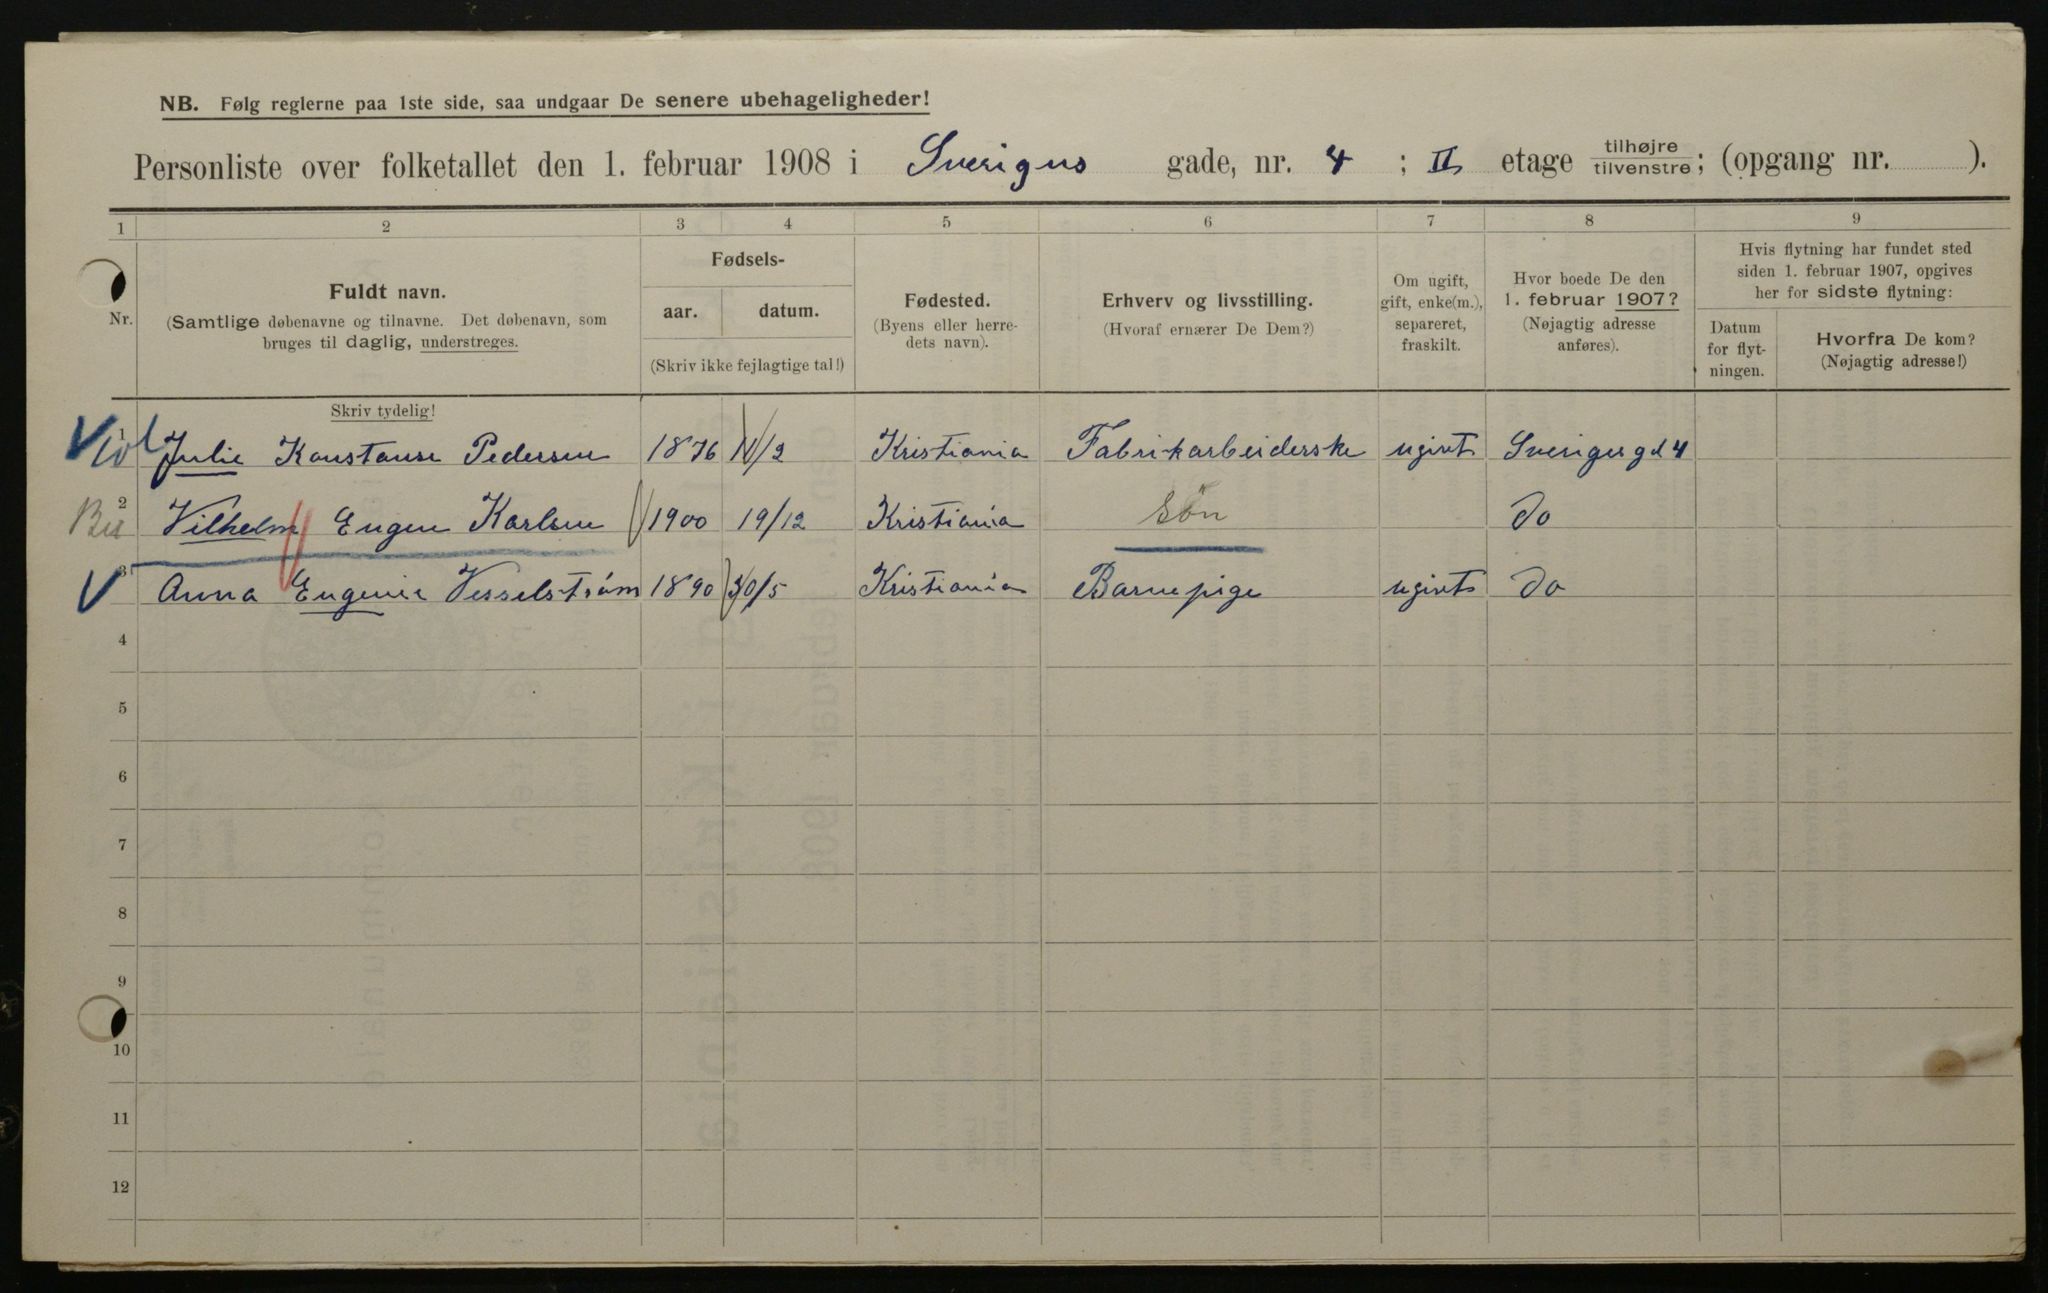 NB. Følg reglerne paa 1ste side, saa undgaar De senere ubehageligheder!
Personliste over folketallet den 1. februar 1908 i Sveriges gade, nr. 4 ; II etage tilhøjre tilvenstre; (opgang nr. ).
1 2 3 4 5 6 7 8 9
Nr.
Fuldt navn.
(Samtlige døbenavne og tilnavne. Det døbenavn, som
bruges til daglig, understreges.
Fødsels-
aar. datum.
(Skriv ikke fejlagtige tal!)
Fødested.
(Byens eller herre-
dets navn).
Erhverv og livsstilling.
(Hvoraf ernærer De Dem?)
Om ugift,
gift, enke(m.),
separeret,
fraskilt.
Hvor boede De den
1. februar 1907?
(Nøjagtig adresse
anføres).
Hvis flytning har fundet sted
siden 1. februar 1907, opgives
her for sidste flytning:
Datum
for flyt-
ningen.
Hvorfra De kom?
(Nøjagtig adresse!)
Skriv tydelig!
1 Julie Konstanse Pedersen 1876 11/2 Kristiania Fabrikarbeiderske ugivt Sverigesgd 4
2 Vilhelm Eugen Karlsen 1900 19/12 Kristiania Søn do
3 Anna Eugenie Vesselstrøm 1890 30/5 Kristiania Barnepige ugivt do
4
5
6
7
8
9
10
11
12